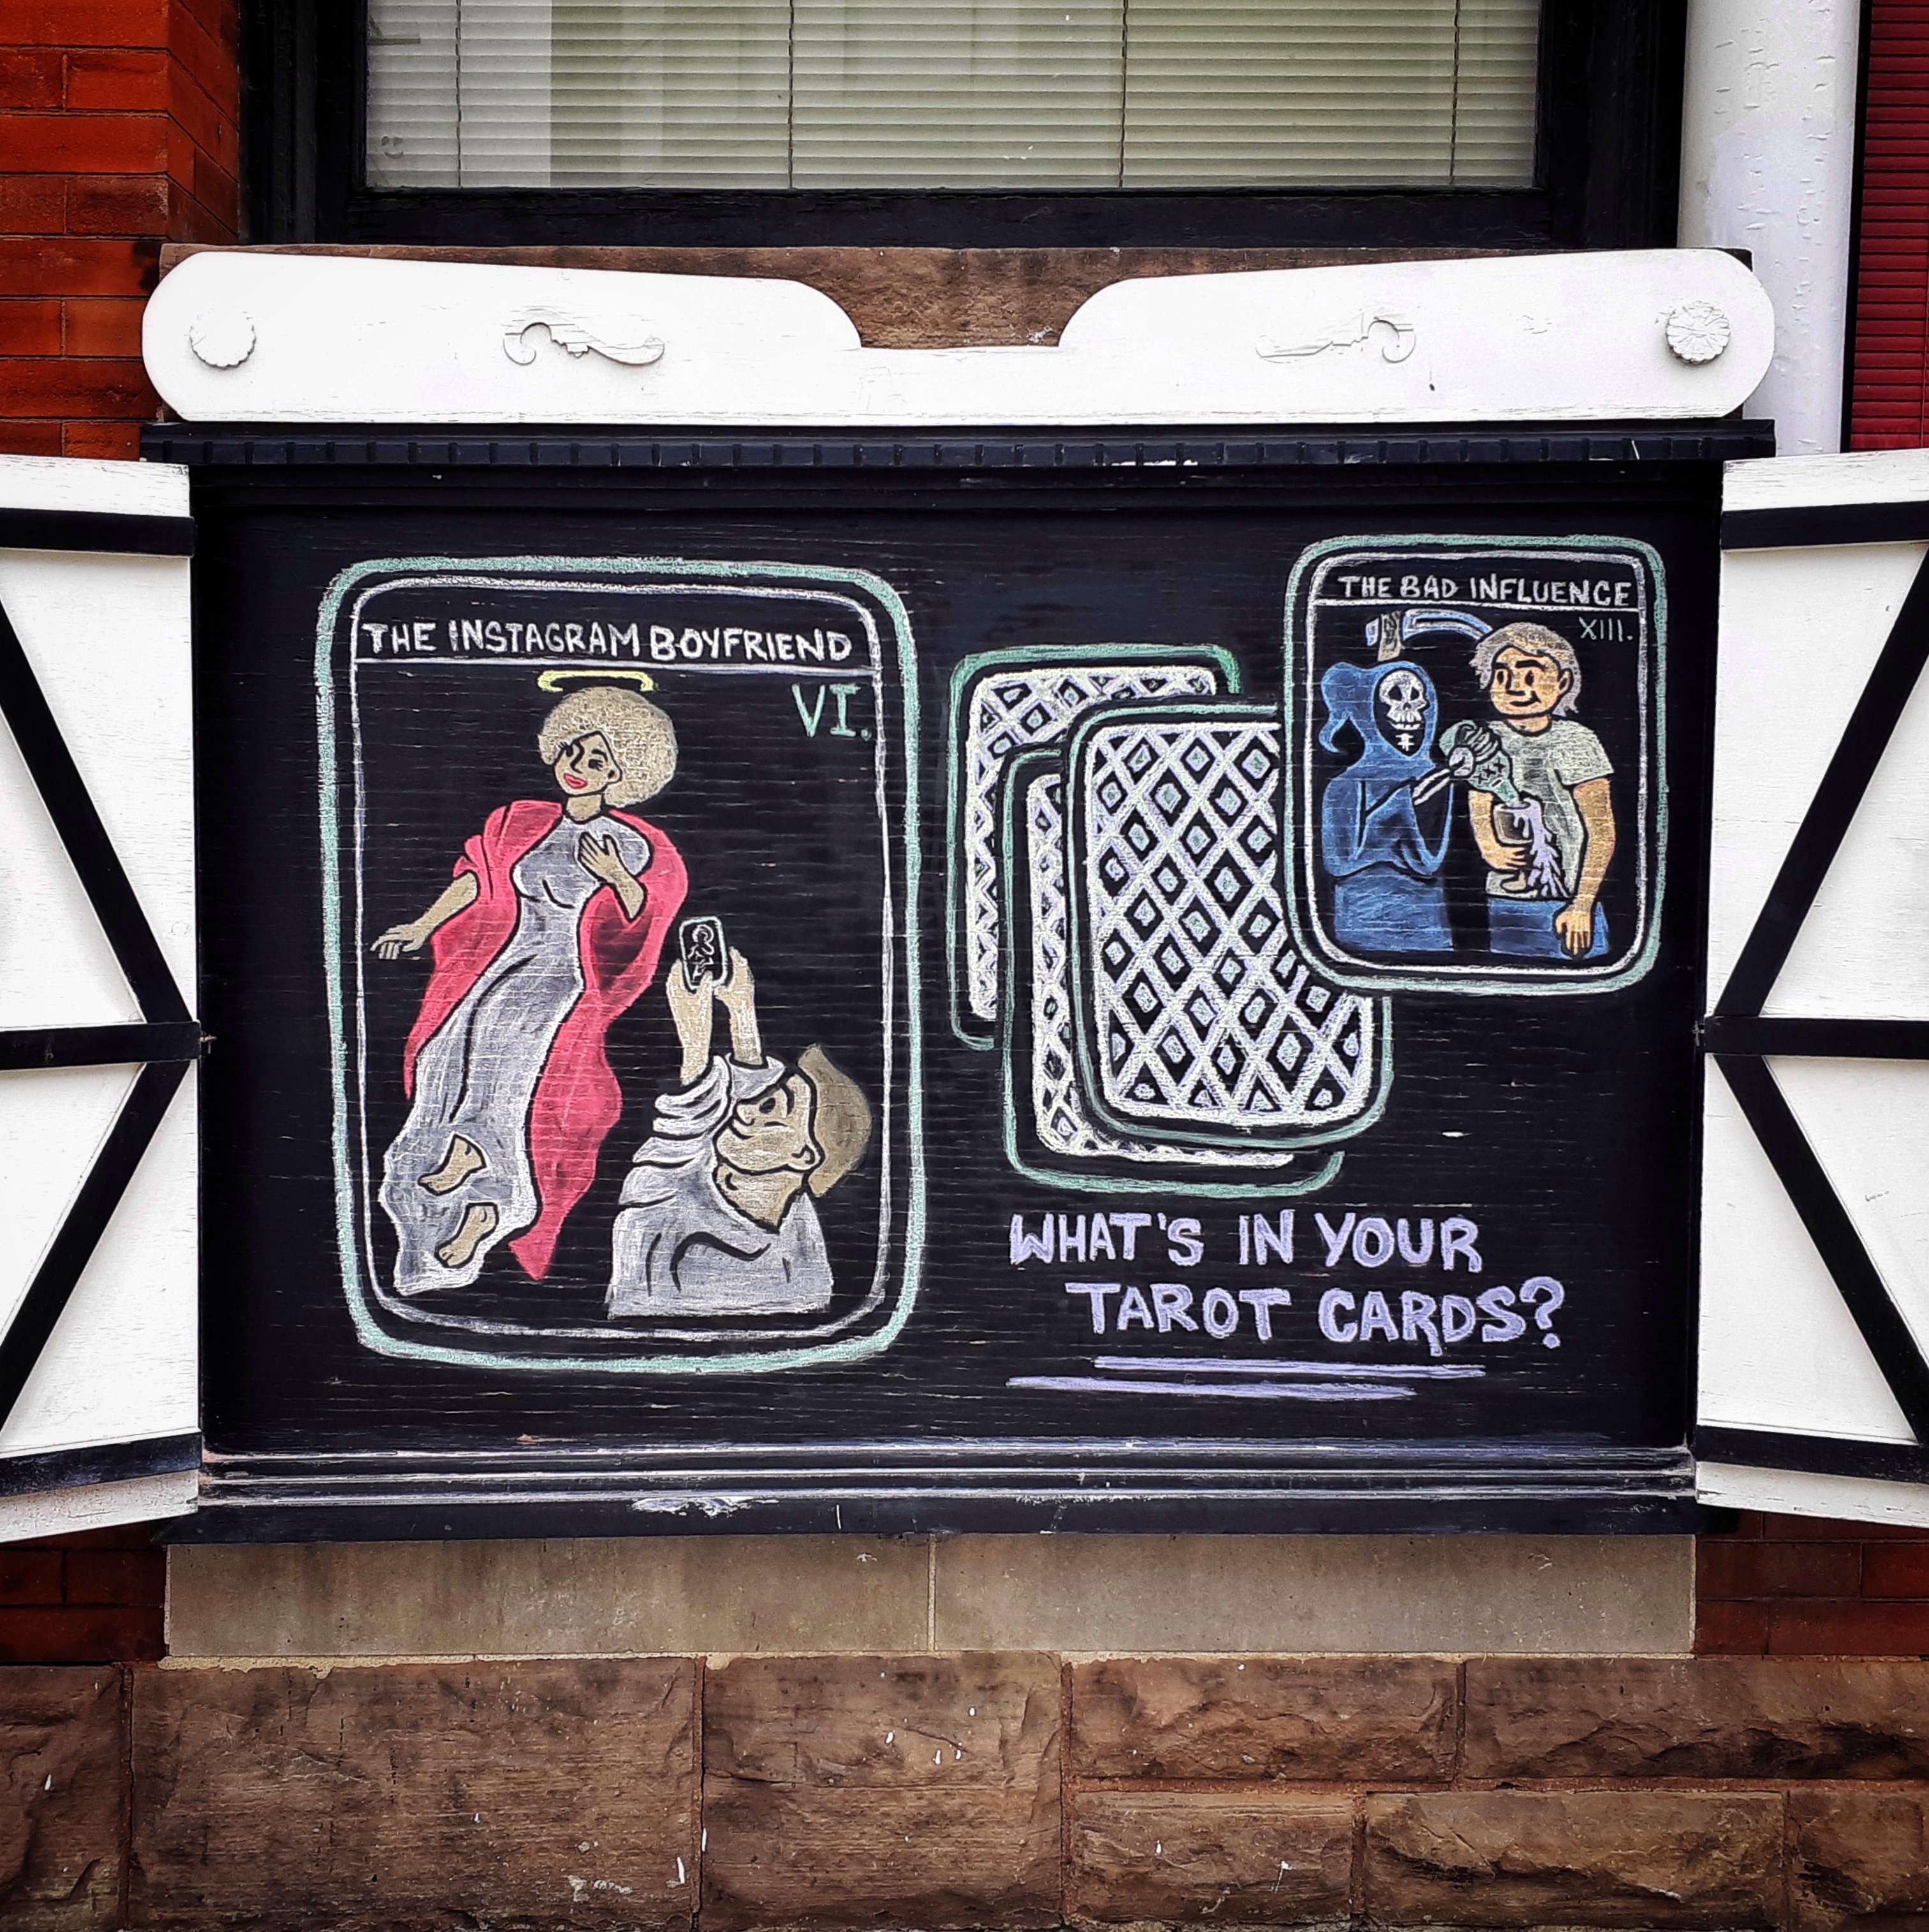 THE INSTAGRAM BOYFRIEND
VI.
THE BAD INFLUENCE
XIII.
XXX
WHAT'S IN YOUR
TAROT CARDS?